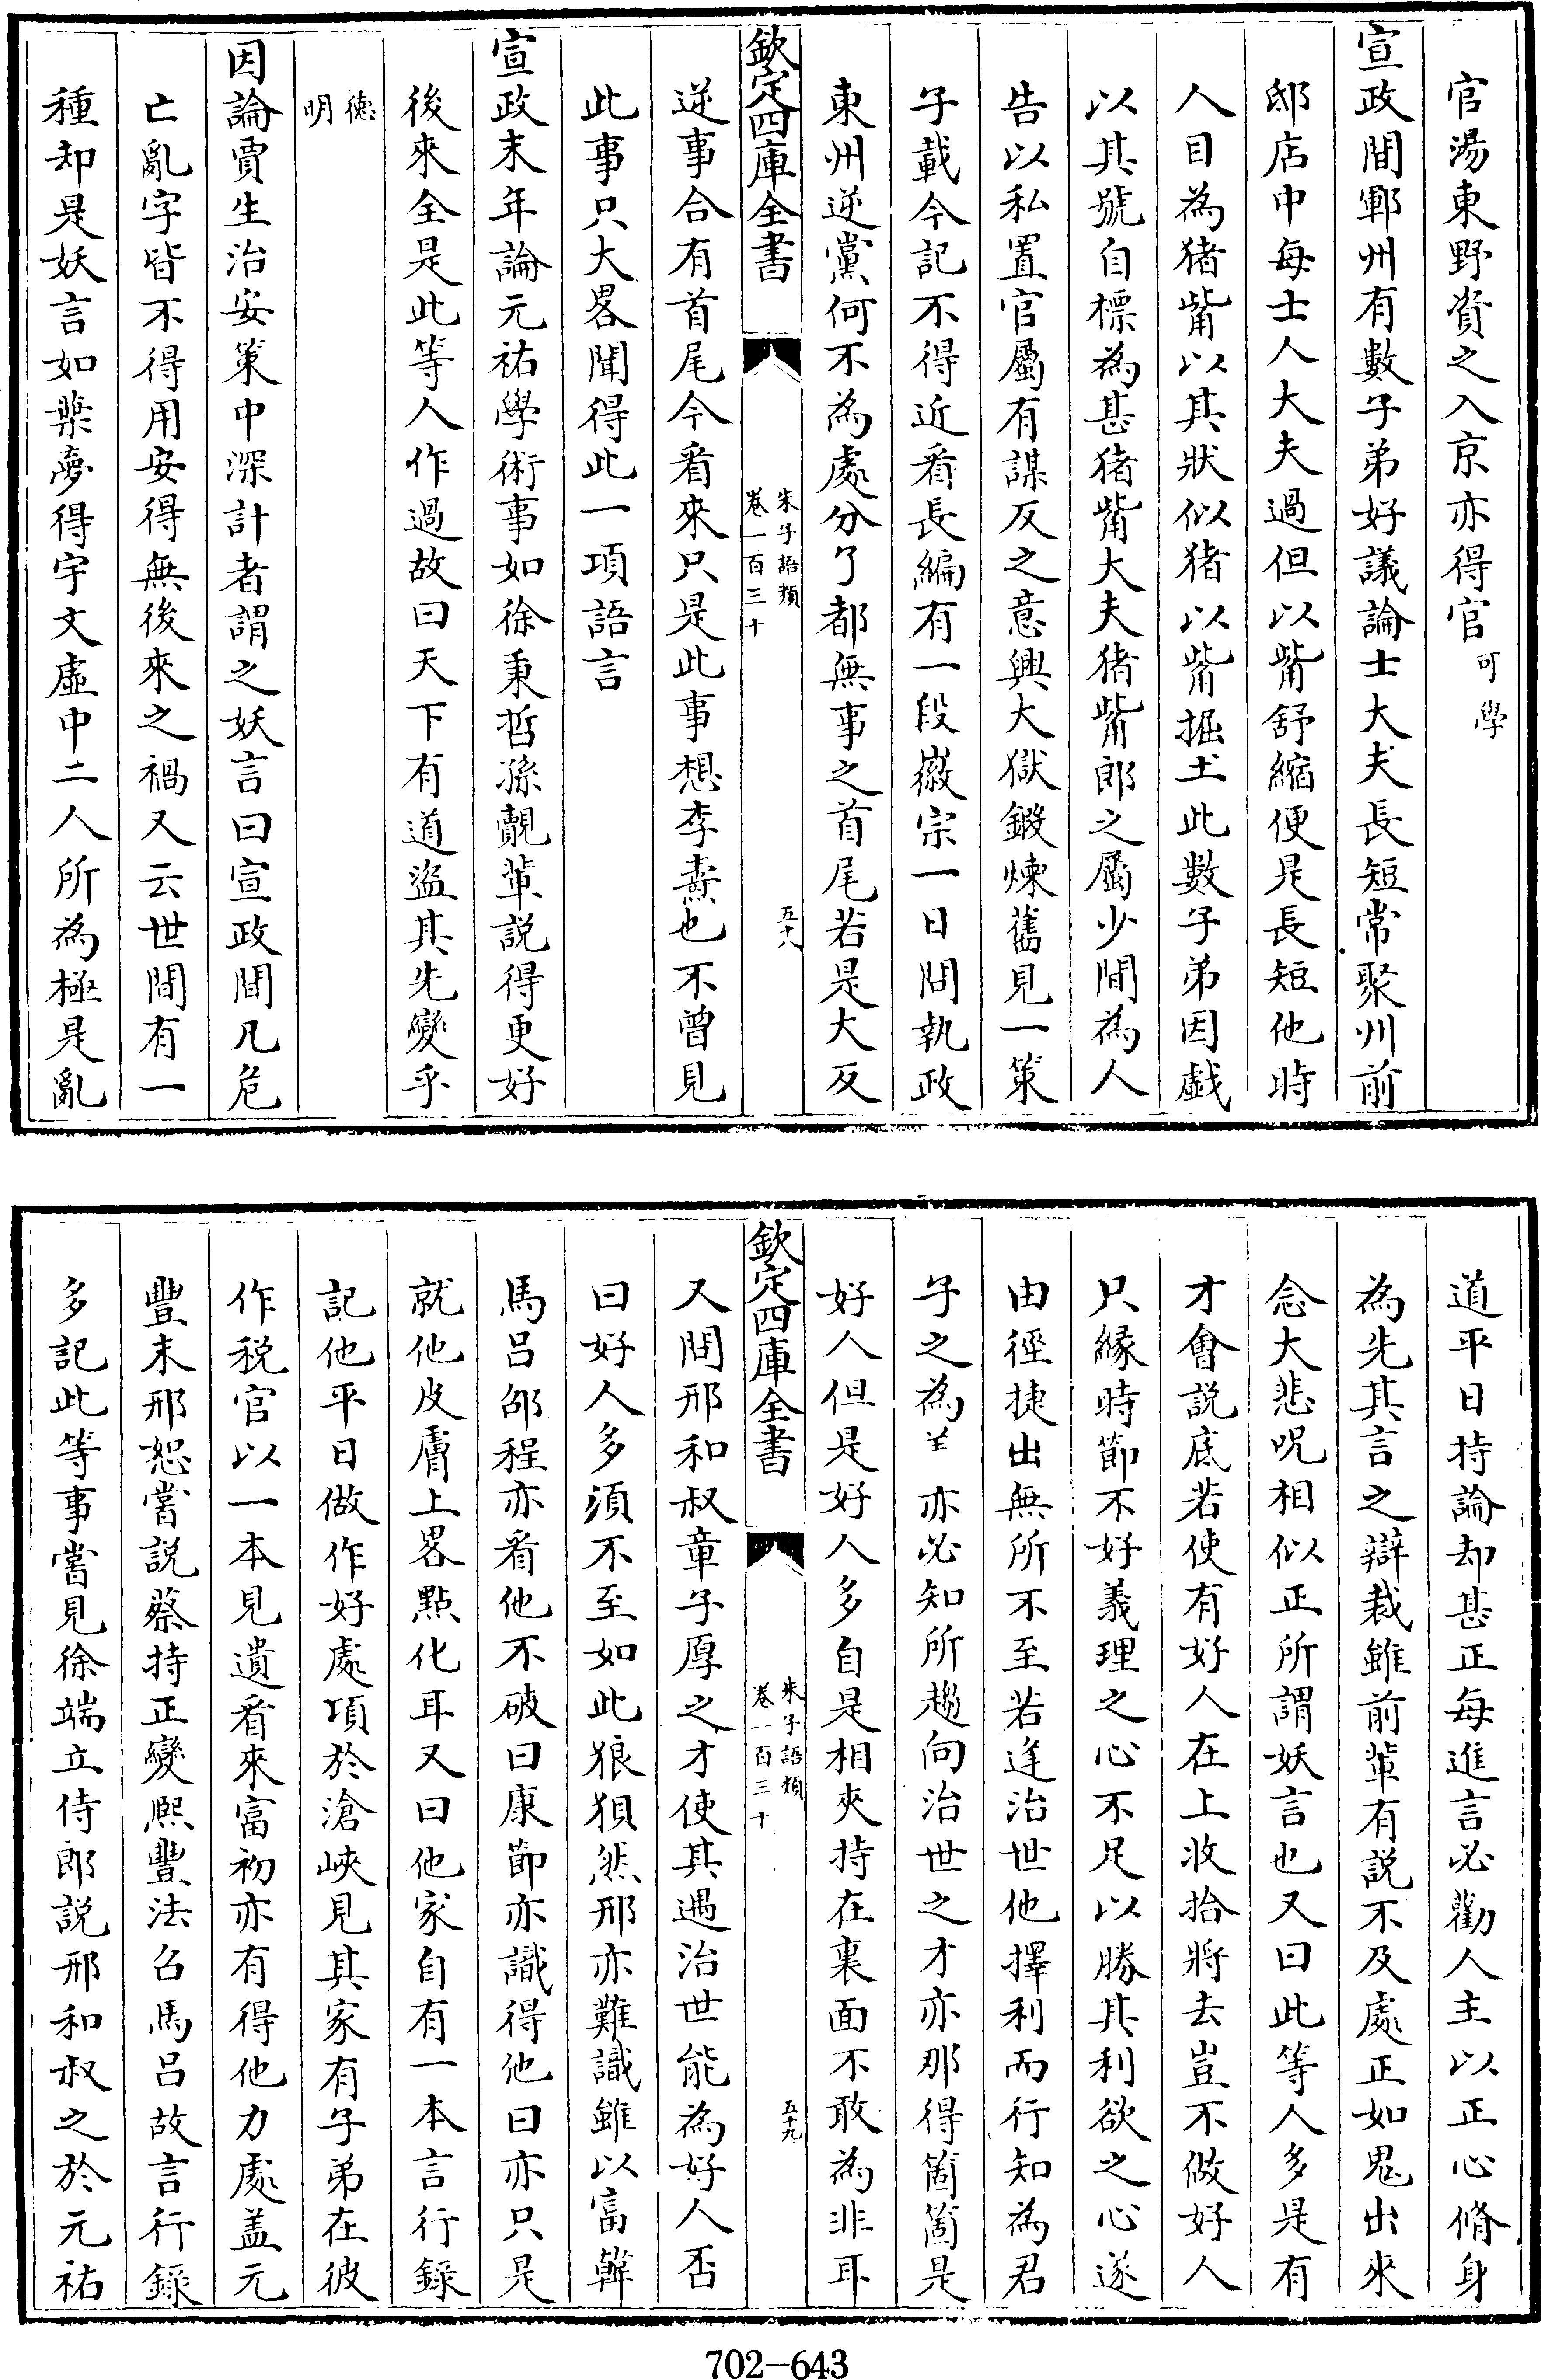 官湯東野資之入京亦得官可學
宣政間鄆州有數子弟好議論士大夫長短常聚州前
邸店中每士人大夫過但以觜舒縮便是長短他時
人目為猪觜以其狀似猪以觜掘土此數子弟因戯
以其號自標為甚猪觜大夫猪觜郎之屬少間為人
告以私置官屬有謀反之意興大獄鍛煉舊見一策
子載今記不得近看長編有一段徽宗一日問執政
東州逆黨何不為處分了都無事之首尾若是大反
欽定四庫全書
朱子語類
卷一百三十
五十八
逆事合有首尾今看來只是此事想李燾也不曽見
此事只大畧聞得此一項語言
宣政末年論元祐學術事如徐秉哲孫覿輩説得更好
後來全是此等人作過故曰天下有道盜其先變乎
德明
因論賈生治安策中深計者謂之妖言曰宣政間凡危
亡亂字皆不得用安得無後來之禍又云世間有一
種却是妖言如葉夢得宇文虛中二人所為極是亂
道平日持論却甚正每進言必勸人主以正心脩身
為先其言之辯裁雖前輩有説不及處正如鬼出來
念大悲呪相似正所謂妖言也又曰此等人多是有
才會説底若使有好人在上收拾將去豈不做好人
只緣時節不好義理之心不足以勝其利欲之心遂
由徑捷出無所不至若逢治世他擇利而行知為君
子之為 亦必知所趨向治世之才亦那得箇箇是
好人但是好人多自是相夾持在裏面不敢為非耳
欽定四庫全書
朱子語類
卷一百三十
五十九
又問邢和叔章子厚之才使其遇治世能為好人否
曰好人多須不至如此狼狽然邢亦難識雖以富韓
馬呂邵程亦看他不破曰康節亦識得他曰亦只是
就他皮膚上畧點化耳又曰他家自有一本言行錄
記他平日做作好處項於滄峽見其家有子弟在彼
作税官以一本見遺看來富初亦有得他力處盖元
豐末邢恕嘗説蔡持正變熙豐法召馬呂故言行錄
多記此等事嘗見徐端立侍郎説邢和叔之於元祐
702-643